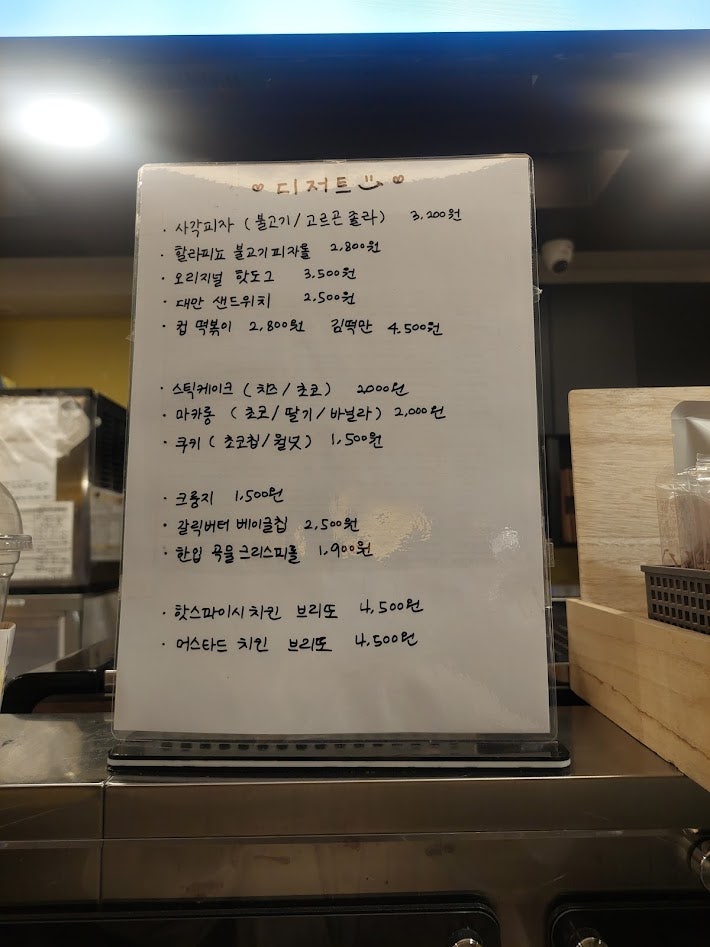 디저트
· 사각피자 (불고기/고르곤졸라) 3,200원
· 할라피뇨 불고기피자롤 2,800원
· 오리지널 핫도그 3,500원
· 대만 샌드위치 2,500원
· 컵 떡볶이 2,800원 김떡만 4,500원
· 스틱케이크 (치즈/초코) 2000원
· 마카롱 (초코/딸기/바닐라) 2,000원
· 쿠키 (초코칩/월넛) 1,500원
· 크룽지 1,500원
· 갈릭버터 베이글칩 2,500원
· 한입 곡물크리스피롤 1,900원
· 핫스파이시치킨 브리또 4,500원
· 머스타드 치킨 브리또 4,500원